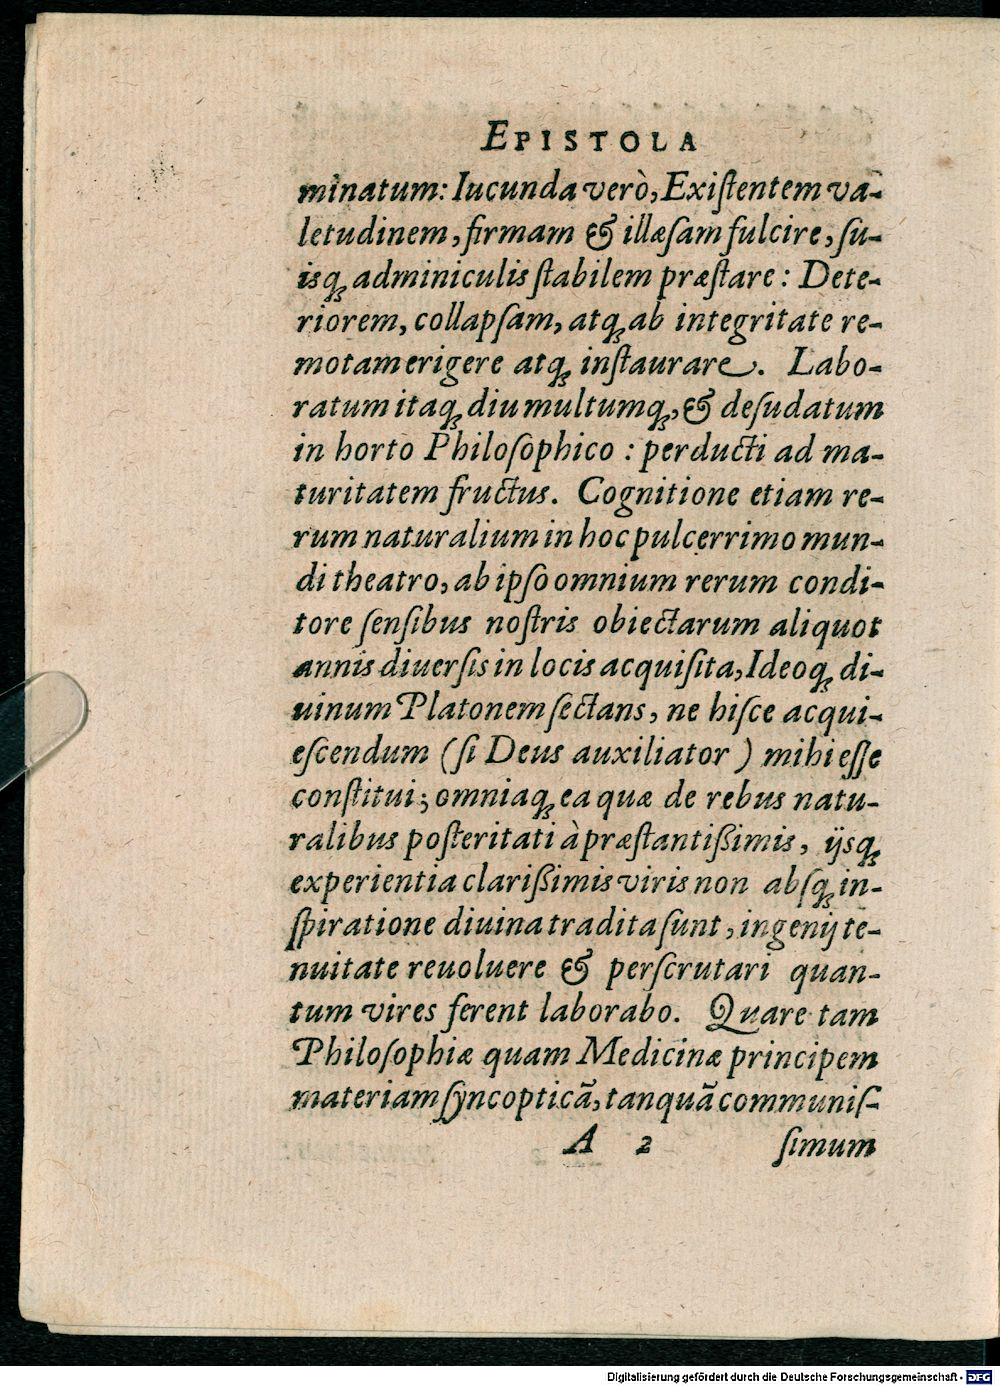 EPISTOLA
minatum: Iucunda verò, Exiſtentem va-
letudinem, firmam & illæſam fulcire, ſu-
isq́ꝫ adminiculis ſtabilem præſtare: Dete-
riorem, collapſam, atqꝫ ab integritate re-
motam erigere atqꝫ inſtaurare. Labo-
ratum itaqꝫ diu multumqꝫ, & deſudatum
in horto Philoſophico: perducti ad ma-
turitatem fructus. Cognitione etiam re-
rum naturalium in hoc pulcerrimo mun-
di theatro, ab ipſo omnium rerum condi-
tore ſenſibus noſtris obiectarum aliquot
annis diuerſis in locis acquiſita, Ideoqꝫ di-
uinum Platonem ſectans, ne hiſce acqui-
eſcendum (ſi Deus auxiliator) mihi eſſe
conſtitui; omniaqꝫ ea quæ de rebus natu-
ralibus poſteritati à præſtantißimis, ijsqꝫ
experientia clarißimis viris non abſqꝫ in-
ſpiratione diuina tradita ſunt, ingenij te-
nuitate reuoluere & perſcrutari quan-
tum vires ferent laborabo. Quare tam
Philoſophiæ quam Medicinæ principem
materiam ſyncopticã, tanquã communiſ-
A 2 ſimum
Digitalisierung gefördert durch die Deutsche Forschungsgemeinschaft - DFG